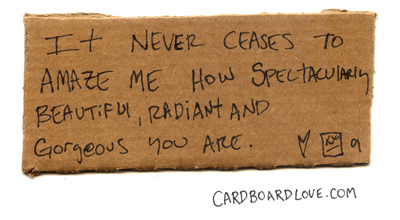 It NEVER CEASES TO
AMAZE ME HOW SPECTACULARLY
BEAUTIFUL, RADIANT AND
Gorgeous YOU ARE.
CARDBOARDLOVE.COM